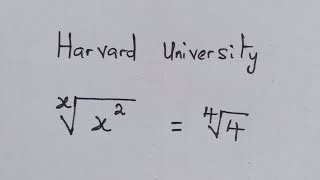 Harvard University
ˣ√x² = ⁴√4